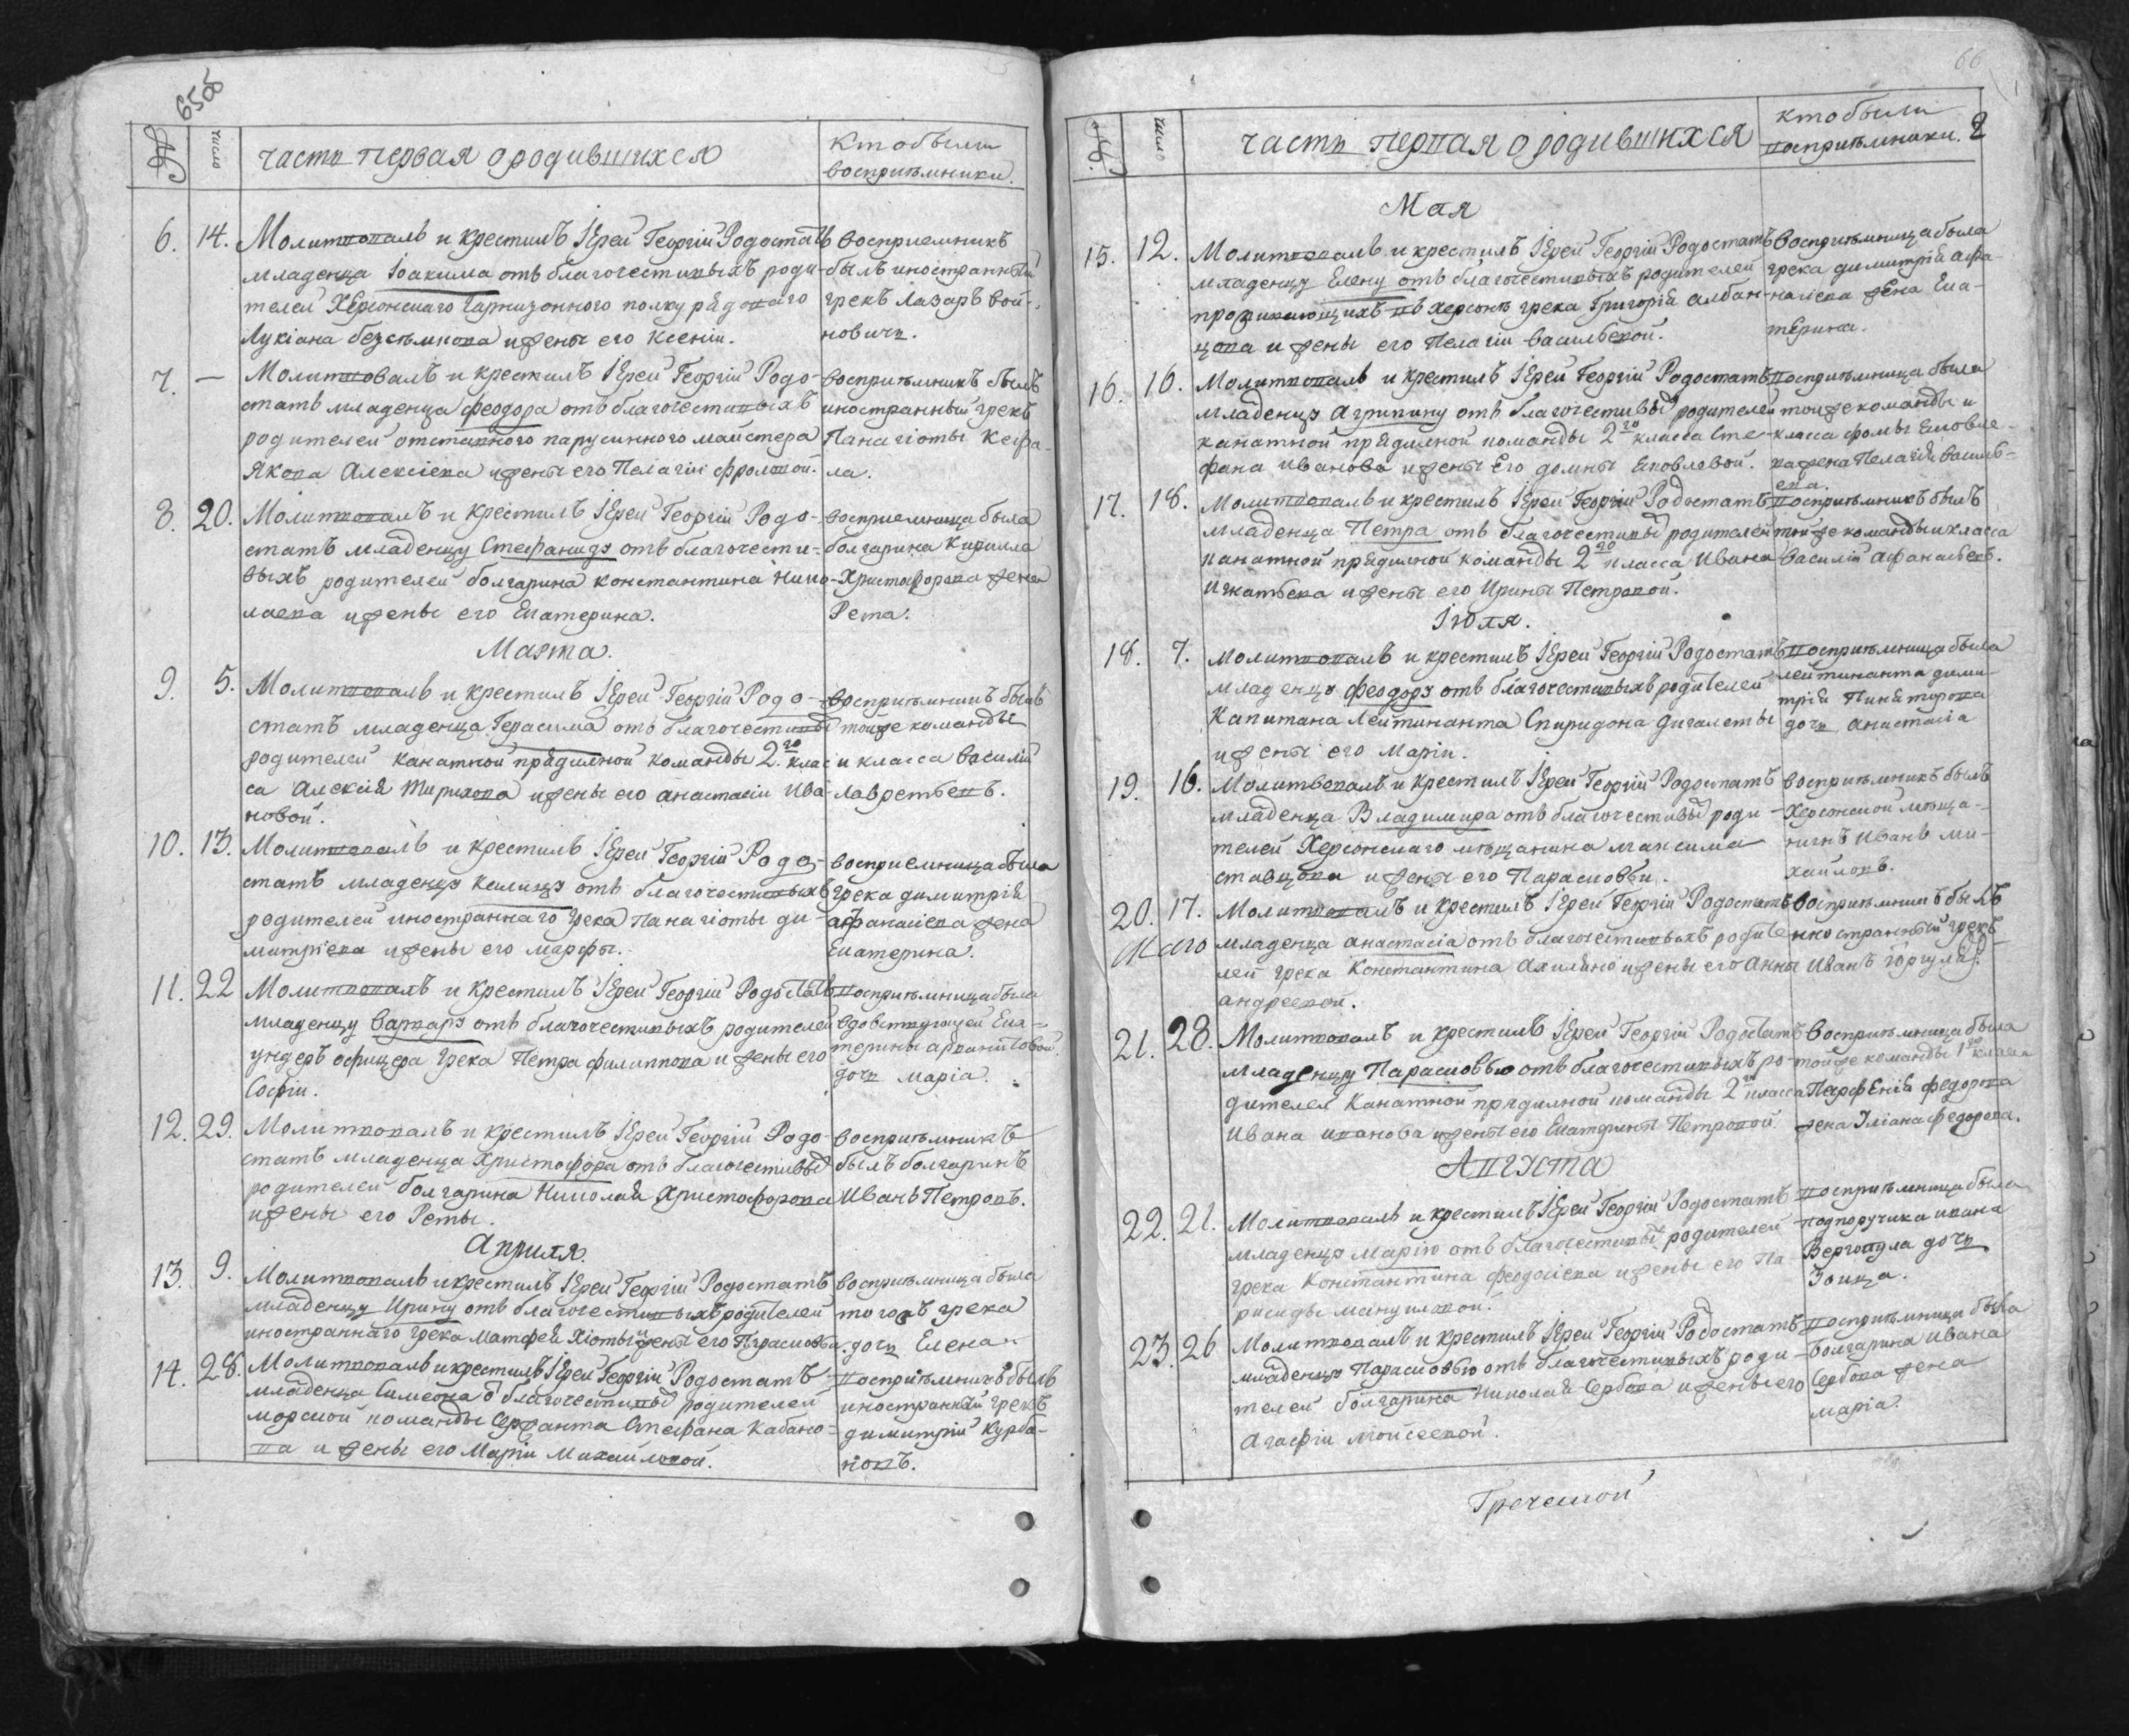 6505
№
число
часть первая о родившихся
кто были
восприѣмники.
6. 14. Молитвовалъ и крестилъ Іерей Георгій Родостатъ
младенца Іоакима отъ благочестивыхъ роди-
телей Херсонскаго Гарнизонного полку рядоваго
Лукіана безсѣмнова и жены его Ксеніи.
восприемникъ
былъ иностранный
грекъ Лазарь Вой-
новичь.
7. — Молитвовалъ и крестилъ Іерей Георгій Родо-
статъ младенца феодора отъ благочестивыхъ
родителей отставного парусинного майстера
Якова Алексіева и жены его Пелагіи фроловой.
восприѣмникъ былъ
иностранный грекъ
Панагіоты Кефа-
ла.
8. 20. Молитвовалъ и крестилъ Іерей Георгій Родо-
статъ младенцу Стефаниду отъ благочести-
выхъ родителей болгарина константина Нико-
лаева и жены его Екатерина.
восприемница была
болгарина Кирилла
Христофорова жена
Рета.
Марта.
9. 5. Молитвовалъ и крестилъ Іерей Георгій Родо-
статъ младенца Герасима отъ благочестивы
родителей канатной прядилной команды 2.го клас
са Алексія Тирихова и жены его анастасіи Ива-
новой.
восприѣмникъ былъ
тойже команды
и класса Василій
Лаврентьевъ.
10. 13. Молитвовалъ и крестилъ Іерей Георгій Родо-
статъ младенцу Калицу отъ благочестивыхъ
родителей иностраннаго Грека Панагіоты ди-
митріева и жены его марфы.
восприемница была
грека димитрія
афанасіева жена
Екатерина.
11. 22 Молитвовалъ и крестилъ Іерей Георгій Родостатъ
младенцу Варвару отъ благочестивыхъ родителей
ундеръ офицера Грека Петра филиппова и жены его
Софіи.
восприѣмница была
вдовствующей Ека-
терины арванитовой
дочь марія.
12. 29. Молитвовалъ и крестилъ Іерей Георгій Родо-
статъ младенца Христофора отъ благочестивы
родителей болгарина Николая Христофорова
и жены его Реты.
восприѣмникъ
былъ болгаринъ
Иванъ Петровъ.
Априля.
13. 9. Молитвовалъ и крестилъ Іерей Георгій Родостатъ
младенцу Ирину отъ благочестивыхъ родителей
иностраннаго Грека матфея Хіоты и жены его Парасковьи.
восприѣмница была
тогожъ грека
дочь Елена
14. 28. Молитвовалъ и крестилъ Іерей Георгій Родостатъ
младенца Симеона о благочестивы родителей
морской команды Сержанта Стефана Кабано-
ва и жены его Маріи Михайловой.
восприѣмникъ былъ
иностранный грекъ
димитрій Курба-
новъ.
66
№.
число
часть первая о родившихся
кто были
восприѣмники. 2
Мая
15. 12. Молитвовалъ и крестилъ Іерей Георгій Родостатъ
младенцу Елену отъ благочестивыхъ родителей
проживающихъ въ херсонѣ грека Григорія албан-
цова и жены его Пелагіи васильевой.
восприѣмница была
грека димитрія афа-
насіева жена Ека-
терина.
16. 16. Молитвовалъ и крестилъ Іерей Георгій Родостатъ
младенцу Агрипину отъ благочестивы родителей
канатной прядилной команды 2го класса Сте-
фана иванова и жены Его домны Яковлевой.
восприѣмница была
тойже команды и
класса фомы Яковле-
ва жена Пелагія василь-
ева.
17. 18. Молитвовалъ и крестилъ Іерей Георгій Родостатъ
младенца Петра отъ благочестивы родителей
канатной прядилной команды 2го класса Ивана
Игнатьева и жены его Ирины Петровой.
восприѣмникъ былъ
тойже команды и класса
Василій афанасьевъ.
Іюля.
18. 7. Молитвовалъ и крестилъ Іерей Георгій Родостатъ
младенцу феодору отъ благочестивыхъ родителей
Капитана Лейтинанта Спиридона дигалеты
и жены его маріи.
восприѣмница была
лейтинанта дими-
трія Пиняторова
дочь анастасіа
19. 16. Молитвовалъ и крестилъ Іерей Георгій Родостатъ
младенца Владимира отъ благочестивы роди-
телей Херсонскаго мѣщанина максима
ставцова и жены его Парасковьи.
восприѣмникъ былъ
Херсонской мѣща-
нинъ Иванъ ми-
хайловъ.
20. 17. Молитвовалъ и крестилъ Іерей Георгій Родостатъ
младенца анастасіа отъ благочестивыхъ родите
лей грека Константина Ахиляно и жены его Анны
андреевой.
восприѣмникъ былъ
иностранный грекъ
Иванъ Горгули.
21. 28. Молитвовалъ и крестилъ Іерей Георгій Родостатъ
младенцу Парасковью отъ благочестивыхъ ро-
дителей Канатной прядилной команды 2го класса
Ивана иванова и жены его Екатерины Петровой.
восприѣмница была
тойже команды 1го класса
Парфенія федорова
жена Уліана федорова.
Августа
22. 21. Молитвовалъ и крестилъ Іерей Георгій Родостатъ
младенцу марію отъ благочестивы родителей
грека Константина феодосіева и жены его Па
рисиды мануиловой.
восприѣмница была
подпоручика ивана
Вергопула дочь
Зоица.
23. 26 Молитвовалъ и крестилъ Іерей Георгій Родостатъ
младенцу Парасковью отъ благочестивыхъ роди-
телей болгарина Николая Сербова и жены его
Агафіи мойсеевой.
восприѣмница была
болгарина ивана
Сербова жена
марія.
Греческой